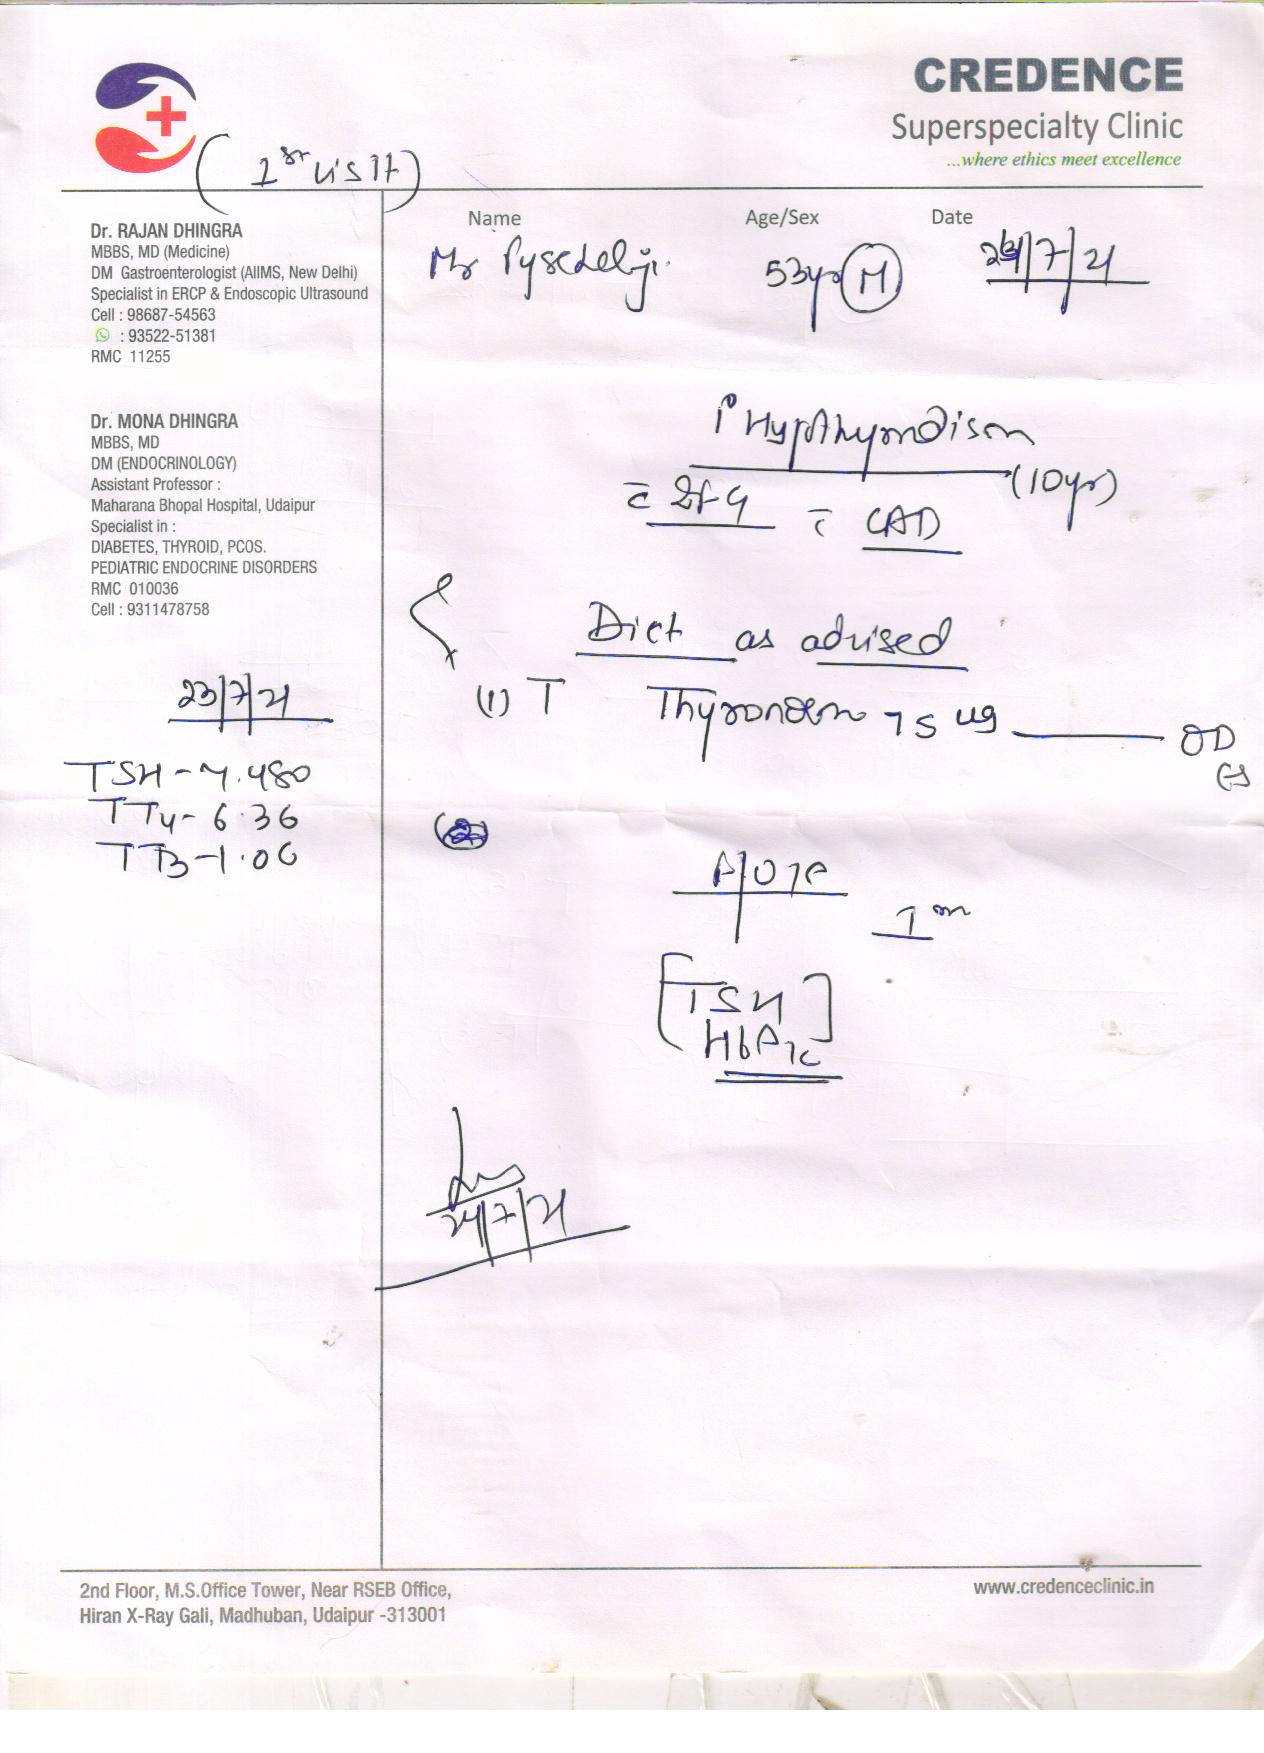 CREDENCE
Superspecialty Clinic
...where ethics meet excellence
(1st visit)
Dr. RAJAN DHINGRA
MBBS, MD (Medicine)
DM Gastroenterologist (AIIMS, New Delhi)
Specialist in ERCP & Endoscopic Ultrasound
Cell : 98687-54563
: 93522-51381
RMC 11255
Dr. MONA DHINGRA
MBBS, MD
DM (ENDOCRINOLOGY)
Assistant Professor :
Maharana Bhopal Hospital, Udaipur
Specialist in :
DIABETES, THYROID, PCOS.
PEDIATRIC ENDOCRINE DISORDERS
RMC 010036
Cell : 9311478758
23/7/21
TSH - 7.480
TT4 - 6.36
TT3 - 1.06
Name Age/Sex Date
Mr 53yr M /7/21
1° Hypothyroidism
(10yr)
c̄ c̄ CAD
Diet as advised
(1) T 75 ug OD
(2)
1m
[TSH
HbA1c]
24/7/21
2nd Floor, M.S.Office Tower, Near RSEB Office,
Hiran X-Ray Gali, Madhuban, Udaipur -313001
www.credenceclinic.in